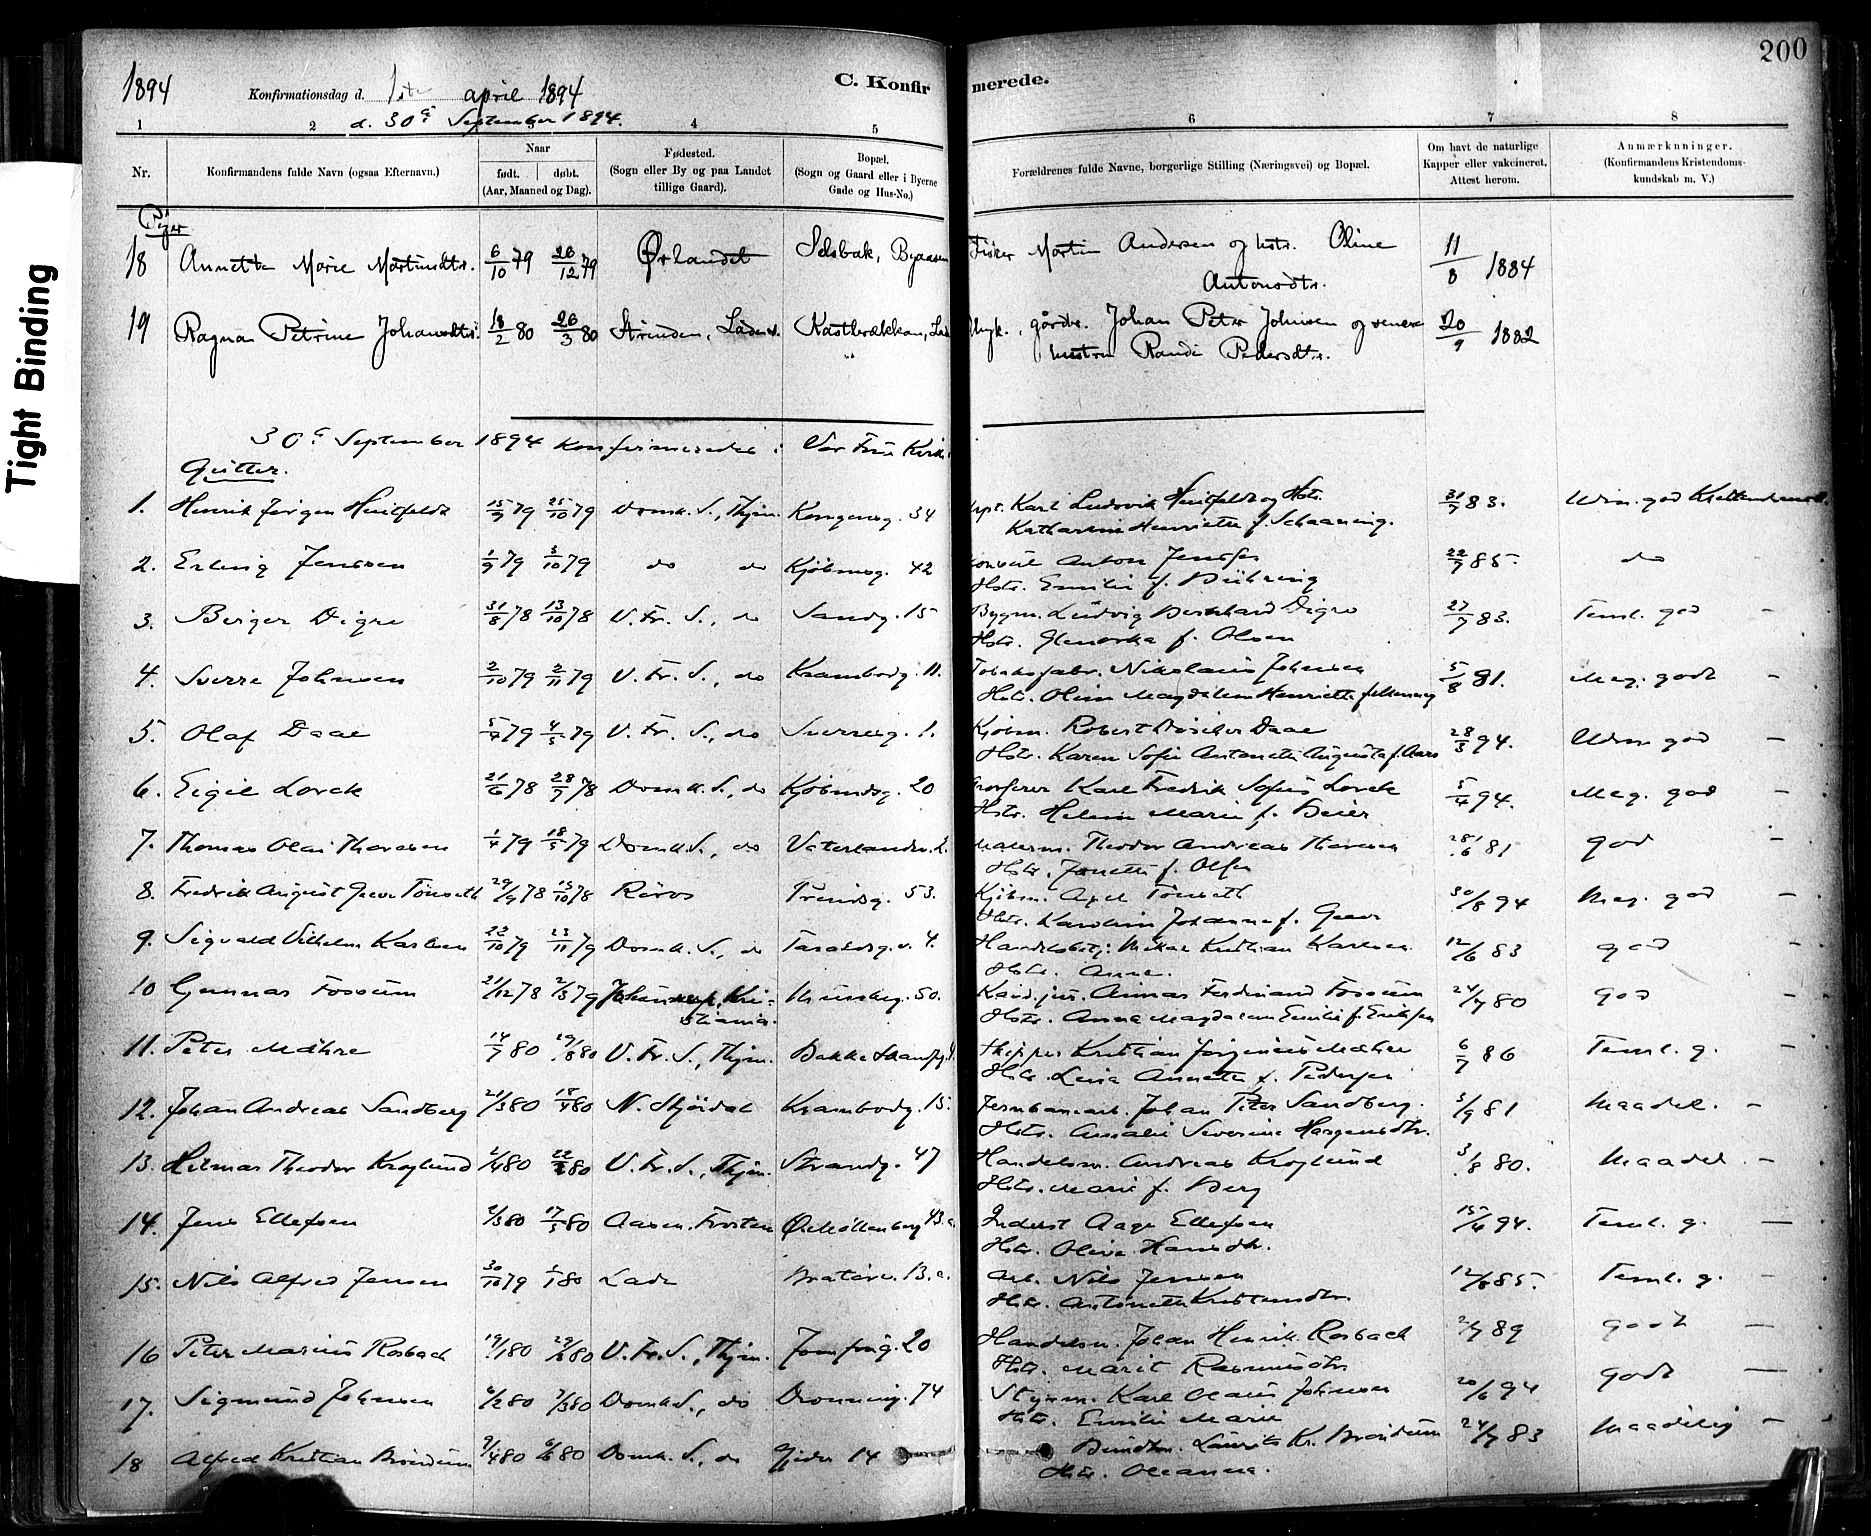 200
1894
Konfirmationsdag d. 1ste april 1894
d. 30te September 1894.
C. Konfirmerede.
1 2 3 4 5 6 7 8
Nr.
Konfirmandens fulde Navn (ogsaa Efternavn).
Naar
født. døbt.
(Aar, Maaned og Dag).
Fødested.
(Sogn eller By og paa Landet
tillige Gaard).
Bopæl.
(Sogn og Gaard eller i Byerne
Gade og Hus-No.)
Forældrenes fulde Navne, borgerlige Stilling (Næringsvei) og Bopæl.
Om havt de naturlige
Kopper eller vakcineret.
Attest herom.
Anmærkninger.
(Konfirmandens Kristendoms-
kundskab m. V.)
Tight Binding
Piger
18 Annetta Marie Martinsdtr. 6/10 79 26/12 79 Ørlandet Selsbak, Byaasen Fisker Martin Andersen og hstr. Oline
Antonsdtr. 11/8 1884
19 Ragna Petrine Johansdtr. 18/2 80 26/3 80 Strinden, Lade s. Kastbrækkan, Lade gårdbr. Johan Peter Johnsen og
hustru Randi Pedersdtr. 20/9 1882
30te September 1894 Konfirmerede i Vor Frue Kirke
Gutter.
1. Henrik Jørgen Huitfeldt 15/9 79 25/10 79 Domk. S., Thjm. Kongensg. 34 Karl Ludvik Huitfeldt og Hstr.
Katharina Henriette f. Schaaning. 31/7 83. Udm. god
2. Erling Jenssen 1/9 79 3/10 79 do do Kjøbmg. 42 Konsul Anton Jenssen
Hstr. Emilie f. Bühring 22/7 85. do
3. Birger Digre 31/8 78 13/10 78 V. Fr. S., do Sandg. 15 Bygm. Ludvig Bernhard Digre
Hstr. f. Olsen 27/7 83. Teml. god -
4. Sverre Johnsen 2/10 79 2/11 79 V. Fr. S., do Krambodg. 11. Tobaksfabr. Nikolaus Johnsen
Hstr. Magdalena Henriette 5/8 81. Meg. godt -
5. Olaf Daae 79 4/5 79 V. Fr. S., do Sverresg. 1. Kjøbm. Robert Daae
Hstr. Karen Sofie Antonette Augusta f. Aars 28/3 94. Udm. god -
6. Eigil Lorck 21/6 78 28/7 78 Domk. S., do Kjøbmdsg. 20 Grosserer Karl Fredrik Sofus Lorck
Hstr. Helene Marie f. Beier 5/4 94. Meg. god -
7. Thomas Olai Thoresen 1/4 79 18/5 79 Domk. S., do Malerm. Theodor Andreas Thoresen
Hstr. Jonette f. Olsen 28/6 81 god -
8. Fredrik August Tønseth 29/9 78 13/10 78 Røros Prindsg. 53. Kjøbm. Axel Tønseth
Hstr. Karoline Johanne f. 30/8 94 Meg. god -
9. Sigvald Vilhelm Karlsen 22/10 79 23/11 79 Domk. S., do 4. Kristian Karlsen
Hstr. Anne. 12/6 83 god -
10 Gunnar Fossum 21/12 78 2/3 79 Kri-
stiania. Munkeg. 50. Kand. jur. Ferdinand Fossum
Hstr. Anna Magdalena Emilie f. Eriksen 24/7 80 god -
11. Peter Mæhre 14/7 80 29/8 80 V. Fr. S., Thjm. Skipper Kristian Mæhre
Hstr. Annette f. Pedersen 6/7 86 Teml. g. -
12. Johan Andreas Sandberg 21/3 80 18/4 80 N. Stjørdal Krambodg. 15. Jernbanearb. Johan Peter Sandberg.
Hstr. Amalie Severine 3/9 81 Maadel. -
13. Hilmar Theodor Kroglund 80 80 V. Fr. S., Thjm. Strandg. 47 Handelsm. Andreas Kroglund
Hstr. Marie f. Berg 3/8 80. Maadel. -
14. Jens Ellefsen 2/3 80 17/5 80 Aasen, Frosten Ø. Møllenberg 43. Inderst Aage Ellefsen
Hstr. Oline Hansdtr. 15/4 94. Teml. g. -
15. Nils Alfred Jensen 30/10 79 1/1 80 Lade Bratøren 13. a. Arb. Nils Jensen
Hstr. Antonette Kristiansdtr. 12/6 85. Teml. g. -
16 Peter Marius Rosbach 19/1 80 80 V. Fr. S., Thjm. Jomfrug. 20 Handelsm. Johan Henrik Rosbach
Hstr. Marit Rasmusdtr. 89 godt -
17. Sigmund Johnsen 6/2 80 7/3 80 Domk. S., do Dronning. 74 Styrm. Karl Johnsen
Hstr. Emilie Marie 20/6 94 godt -
18 Alfred Kristian 9/4 80 80 Domk. S., do 14 Laurits Kr.
Hstr. Oleanna. 24/7 83 Maadelig -